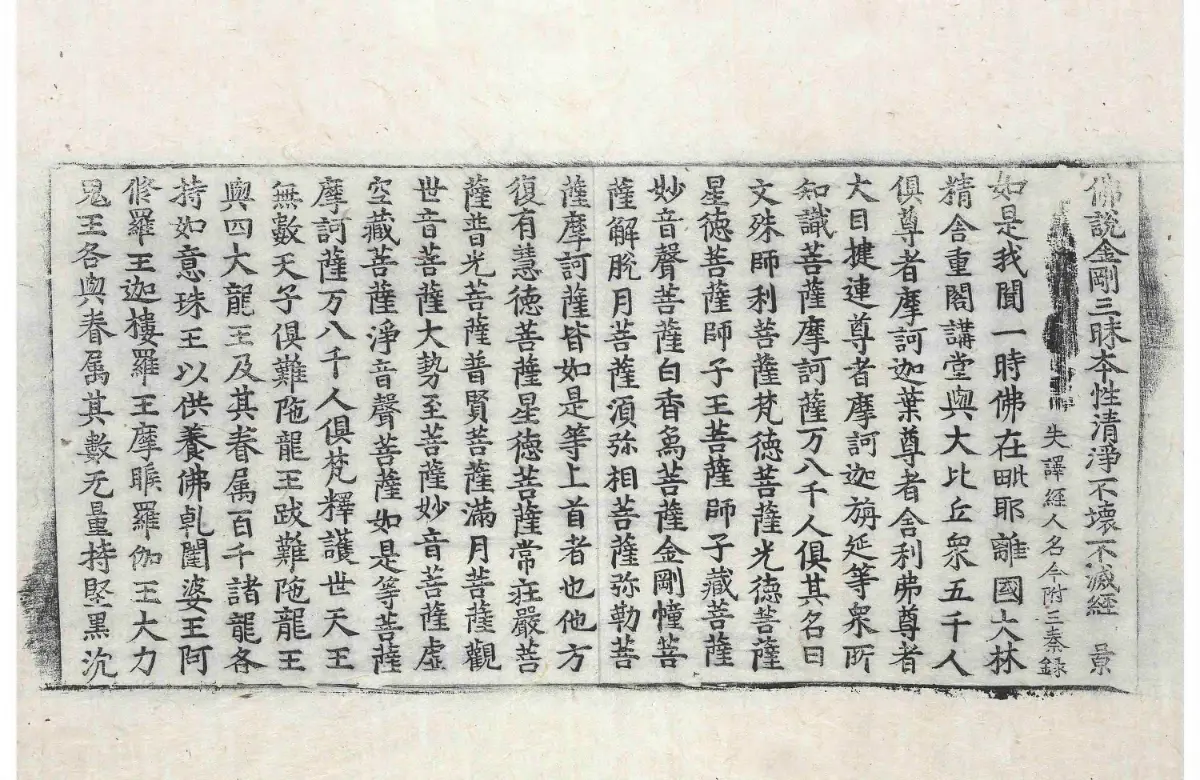 佛說金剛三昧本性清淨不壞不滅經 景
失譯經人名今附三秦錄
如是我聞一時佛在毗耶離國大林
精舍重閣講堂與大比丘衆五千人
俱尊者摩訶迦葉尊者舍利佛尊者
大目揵連尊者摩訶迦旃延等衆所
知識菩薩摩訶薩万八千人俱其名曰
文殊師利菩薩梵德菩薩光德菩薩
星德菩薩師子王菩薩師子藏菩薩
妙音聲菩薩白香爲菩薩金剛幢菩
薩解脫月菩薩湏弥相菩薩弥勒菩
薩摩訶薩皆如是等上首者也他方
復有慧德菩薩星德菩薩常莊嚴菩
薩普光菩薩普賢菩薩滿月菩薩觀
世音菩薩大勢至菩薩妙音菩薩虛
空藏菩薩淨音聲菩薩如是等菩薩
摩訶薩万八千人俱梵釋護世天王
無數天子俱難陁龍王跋難陁龍王
與四大龍王及其眷属百千諸龍各
持如意珠王以供養佛乹闥婆王阿
修羅王迦樓羅王摩睺羅伽王大力
鬼王各與眷属其數无量持堅黑沉